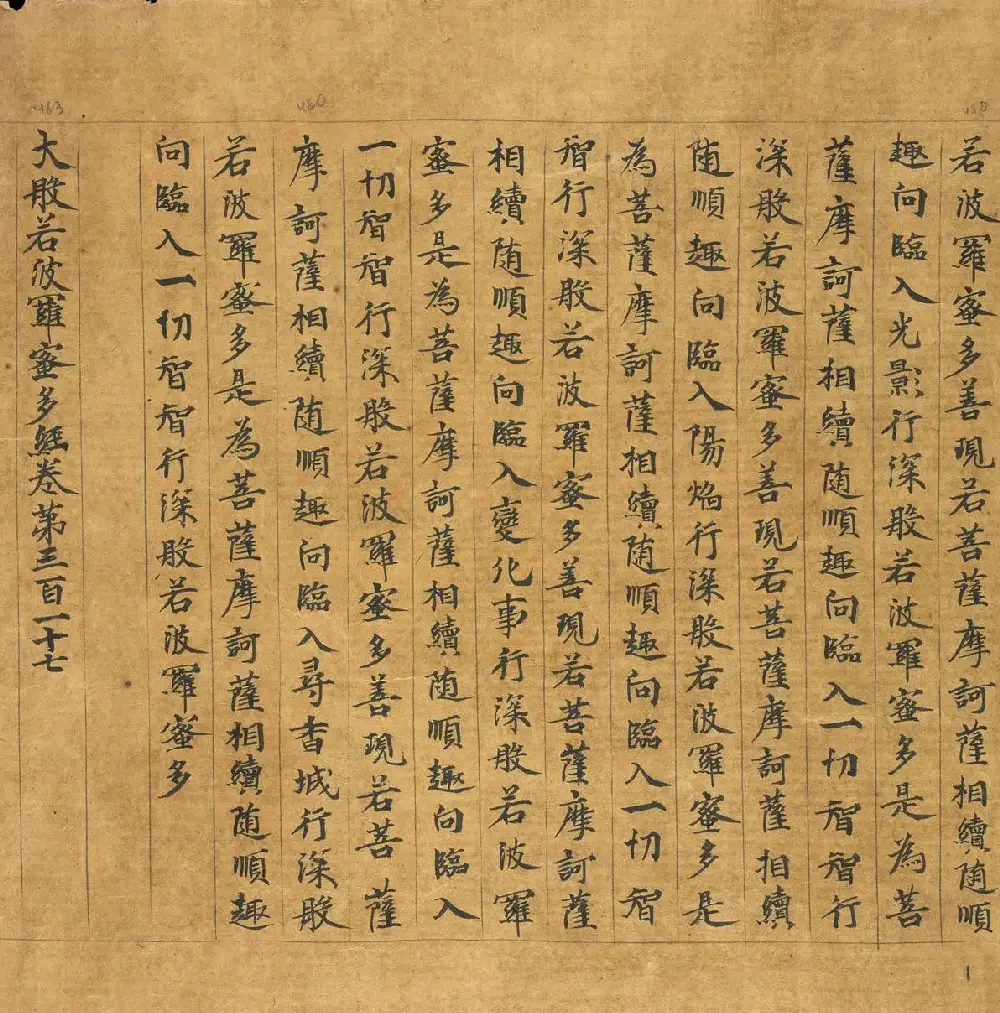 若波羅蜜多善現若菩薩摩訶薩相續随順
趣向臨入光影行深般若波羅蜜多是為菩
薩摩訶薩相續随順趣向臨入一切智智行
深般若波羅蜜多善現若菩薩摩訶薩相續
随順趣向臨入陽焔行深般若波羅蜜多是
為菩薩摩訶薩相續随順趣向臨入一切智
智行深般若波羅蜜多善現若菩薩摩訶薩
相續随順趣向臨入變化事行深般若波羅
蜜多是為菩薩摩訶薩相續随順趣向臨入
一切智智行深般若波羅蜜多善現若菩薩
摩訶薩相續随順趣向臨入尋香城行深般
若波羅蜜多是為菩薩摩訶薩相續随順趣
向臨入一切智智行深般若波羅蜜多
大般若波羅蜜多經卷第三百一十七